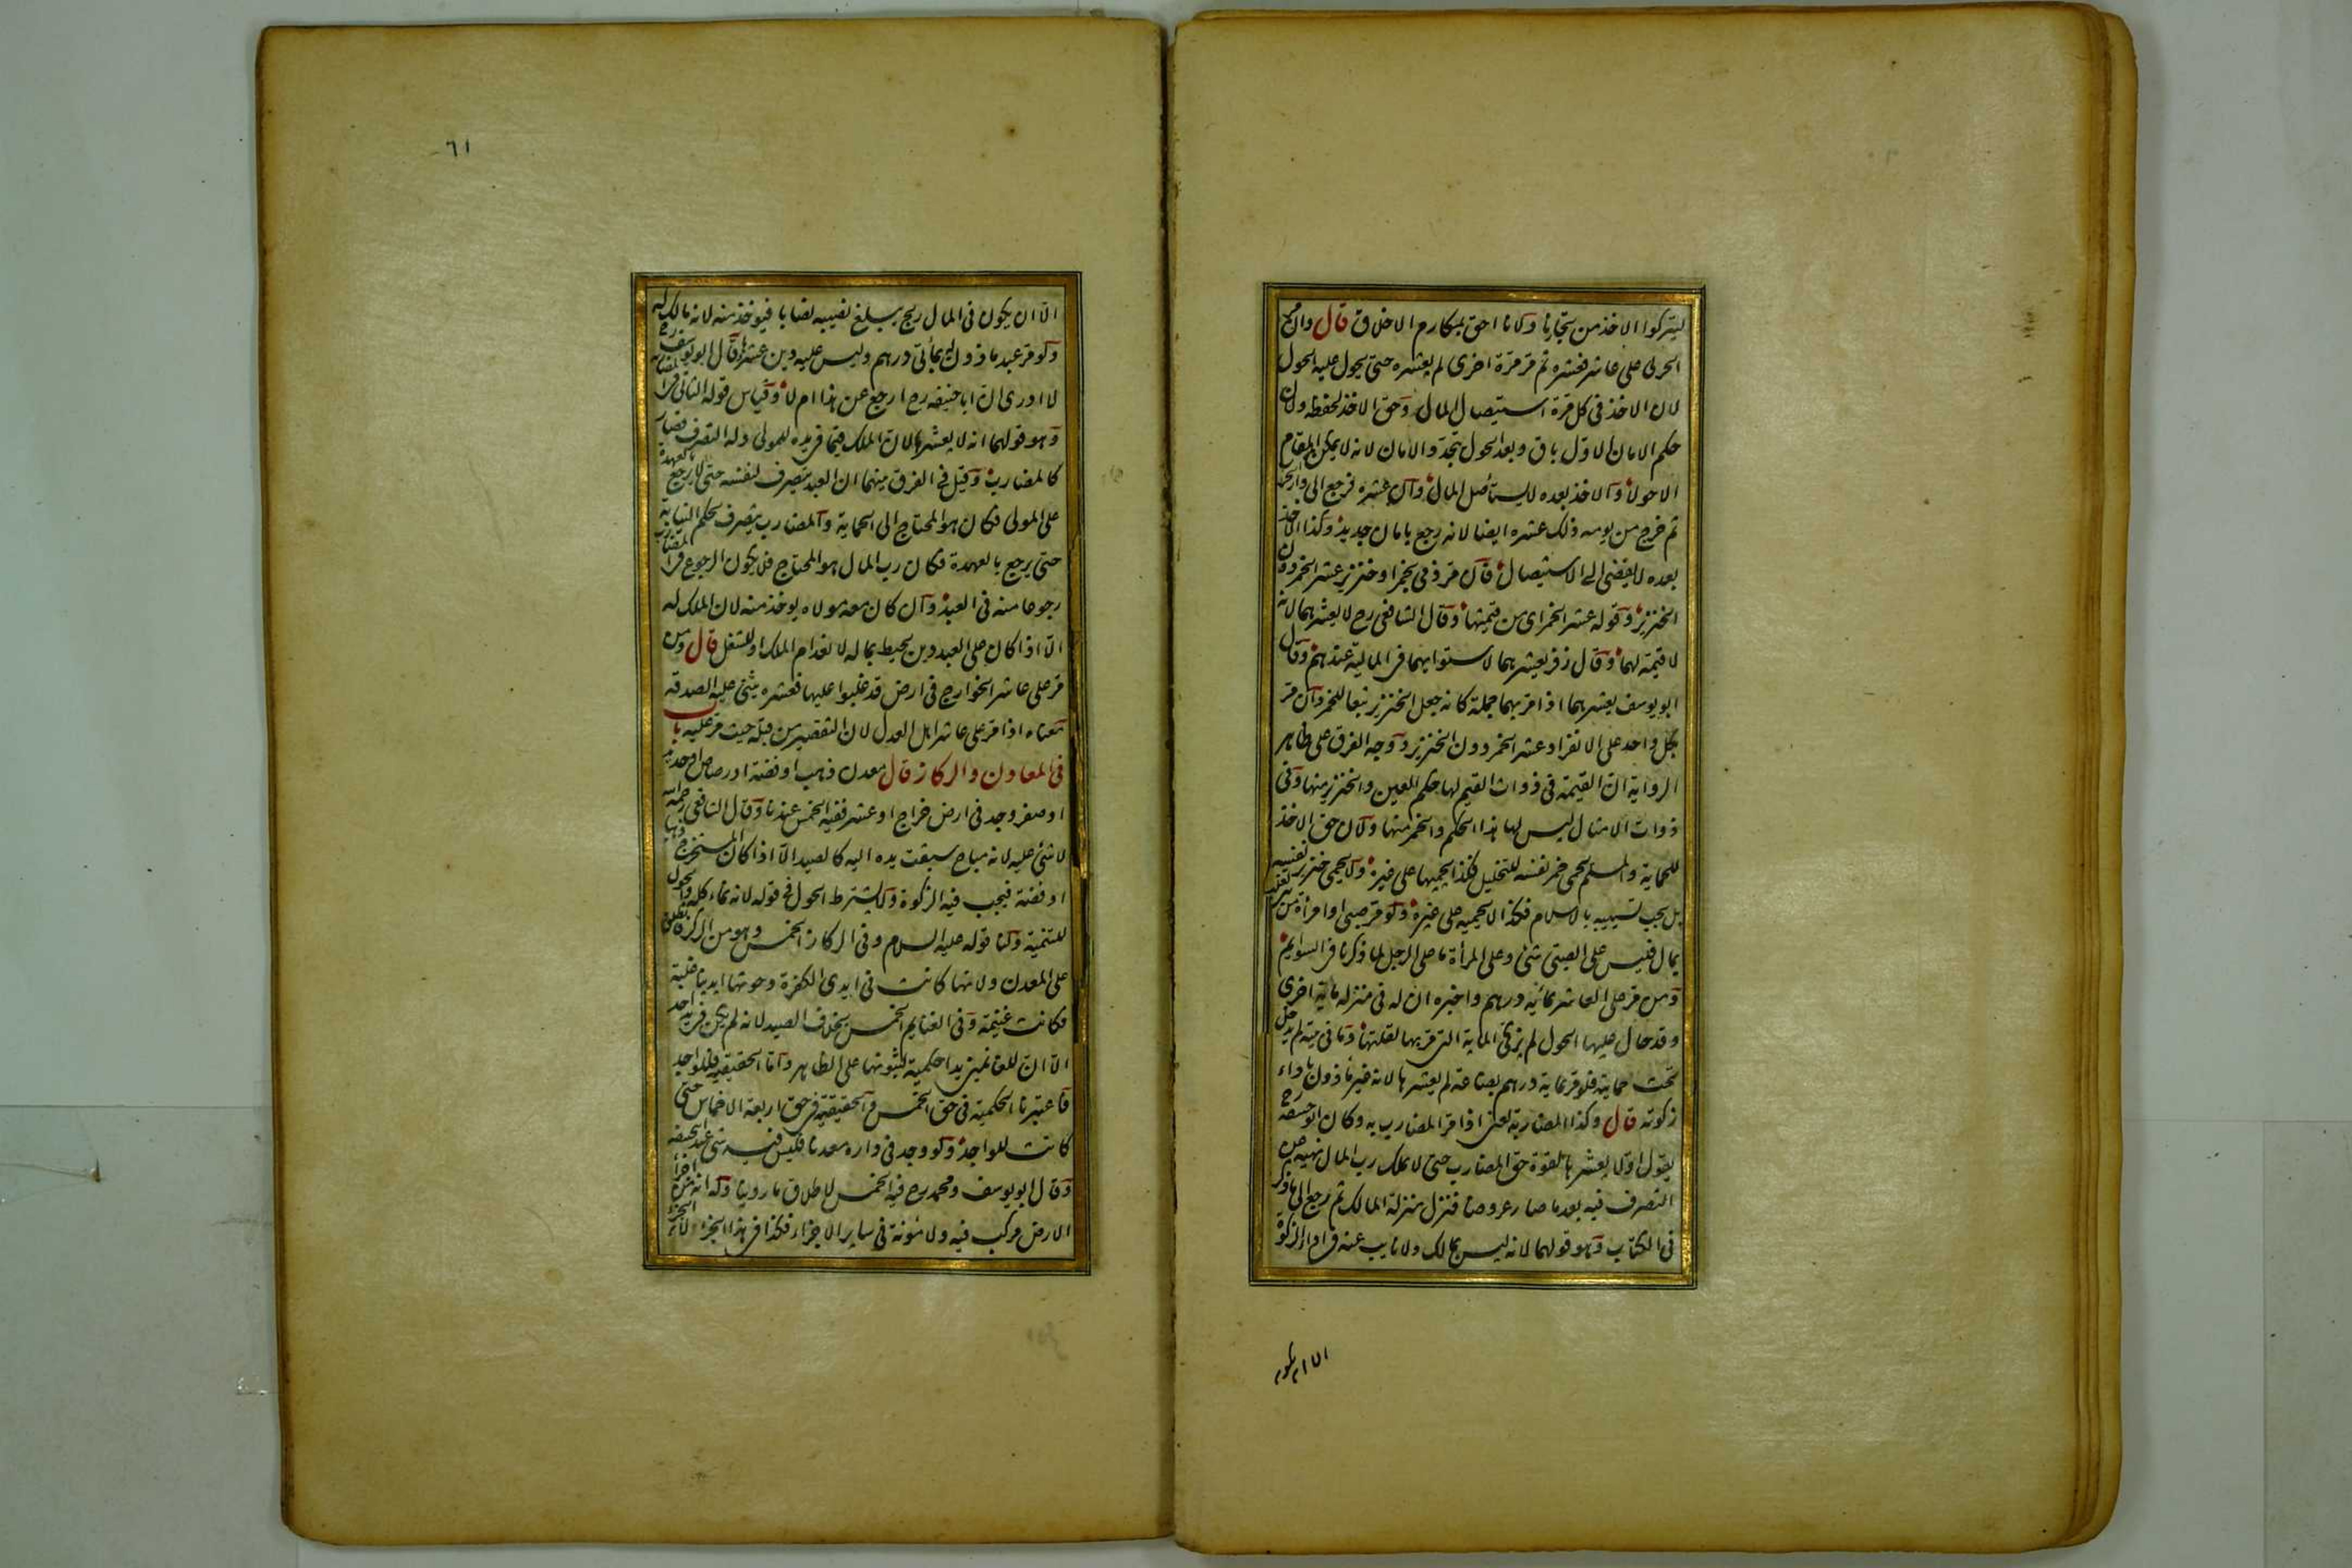 ليتركوا الاخذ من تجارنا ولانا احق بمكارم الاخلاق قال وان مر
الحربى على عاشر فعشره ثم مر مرة اخرى لم يعشره حتى يحول عليه الحول
لان الاخذ فى كل مرة استيصال المال وحق الاخذ لحفظه ولان
حكم الامان الاول باق وبعد الحول يتجدد الامان لانه لا يمكن المقام
الا حولا والاخذ بعده لا يستأصل المال وان عشره فرجع الى دار الحرب
ثم خرج من يومه ذلك عشره ايضا لانه رجع بامان جديد وكذا الاخذ
بعده لا يفضى الى الاستيصال قال مر ذمى بخمر او خنزير عشر الخمر دون
الخنزير وقوله عشر الخمر اى من قيمتها وقال الشافعى رح لا يعشرهما لانه
لا قيمة لهما وقال زفر يعشرهما لاستوايهما فى المالية عندهم وقال
ابو يوسف يعشرهما اذا مر بهما جملة كانه جعل الخنزير تبعا للخمر وان مر
بكل واحد على الانفراد عشر الخمر دون الخنزير ووجه الفرق على ظاهر
الرواية ان القيمة فى ذوات القيم لها حكم العين والخنزير منها وفى
ذوات الامثال ليس لها هذا الحكم والخمر منها ولان حق الاخذ
للحماية والمسلم يحمى خمر نفسه للتخليل فكذا يحميها على غيره ولا يحمى خنزير نفسه
بل يجب تسييبه بالاسلام فكذا لا يحميه على غيره ولو مر صبى او امرأة من بنى تغلب
بمال فليس على الصبى شئ وعلى المرأة ما على الرجل لما ذكرنا فى السوايم
ومن مر على العاشر بمائة درهم واخبره ان له فى منزله ماية اخرى
وقد حال عليها الحول لم يزكى الماية التى مر بها لقلتها وما فى بيته لم يدخل
تحت حمايته فلو مر بماية درهم بضاعة لم يعشرها لانه غير مأذون باداء
زكوته قال وكذا المضاربة يعنى اذا مر المضارب به وكان ابو حنيفه رح
يقول اولا يعشرها لقوة حق المضارب حتى لا يملك رب المال نهيه عن
التصرف فيه بعد ما صار عروضا فنزل منزلة المالك ثم رجع الى ما ذكر
فى الكتاب وهو قولهما لانه ليس بمالك ولا نايب عنه فى اداء الزكوة
٦١
الا ان يكون فى المال ربح يبلغ نصيبه نصابا فيوخذ منه لانه مالك له
ولو مر عبد ماذون له بمأتى درهم وليس عليه دين عشرها وقال ابو يوسف رح
لا ادرى ان ابا حنيفه رح رجع عن هذا ام لا وقياس قوله الثانى فى المضاربة
وهو قولهما انه لا يعشرها لان الملك فيما فى يده للمولى وله التصرف فصار
كالمضارب وقيل فى الفرق بينهما ان العبد يتصرف لنفسه حتى لا يرجع بالعهدة
على المولى فكان هو المحتاج الى الحماية والمضارب يتصرف بحكم النيابة
حتى يرجع بالعهدة فكان رب المال هو المحتاج فلا يكون الرجوع فى المضارب
رجوعا منه فى العبد وان كان معه مولاه يوخذ منه لان الملك له
الا اذا كان على العبد دين يحيط بماله لانعدام الملك او للشغل قال ومن
مر على عاشر الخوارج فى ارض قد غلبوا عليها فعشره يثنى عليه الصدقة
معناه اذا مر على عاشر اهل العدل لان التقصير من قبله حيث مر عليه باب
فى المعادن والركاز قال معدن ذهب او فضة او رصاص او حديد
او صفر وجد فى ارض خراج او عشر ففيه الخمس عندنا وقال الشافعى رحمه الله
لا شئ عليه لانه مباح سبقت يده اليه كالصيد الا اذا كان المستخرج ذهبا
او فضة فيجب فيه الزكوة ولا يشترط الحول فى قوله لانه نماء كله والحول
للتنمية ولنا قوله عليه السلام وفى الركاز الخمس وهو من الركز فاطلق
على المعدن ولانها كانت فى ايدى الكفرة وحوتها ايدينا غلبة
فكانت غنيمة وفى الغنايم الخمس بخلاف الصيد لانه لم يكن فى يد احد
الا ان للغانمين يدا حكمية لثبوتها على الظاهر واما الحقيقية فللواجد
فاعتبرنا الحكمية فى حق الخمس والحقيقية فى حق اربعة الاخماس حتى
كانت للواجد ولو وجد فى داره معدنا فليس فيه شئ عند ابى حنيفه
وقال ابو يوسف ومحمد رح فيه الخمس لاطلاق ما روينا وله انه من اجزاء
الارض مركب فيه ولا مؤنة فى ساير الاجزاء فكذا فى هذا الجزء لان الجزء